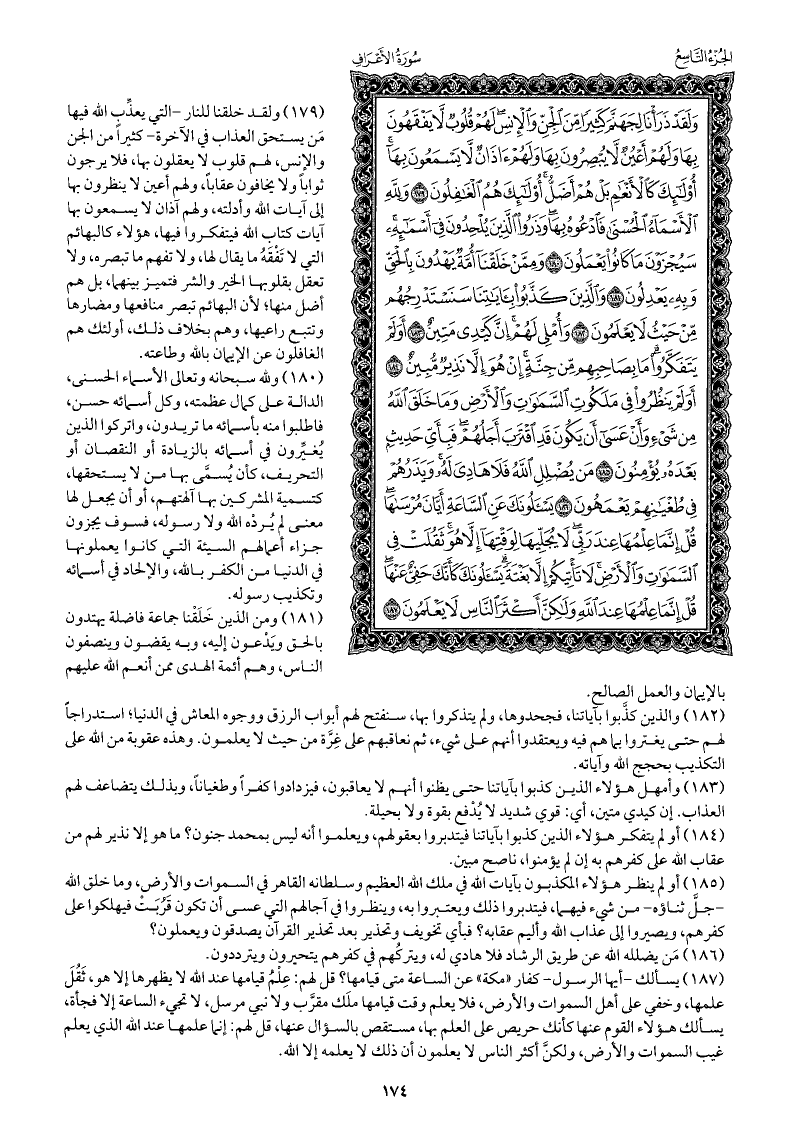 الجزء التاسع
سورة الأعراف
وَلَقَدْ ذَرَأْنَا لِجَهَنَّمَ كَثِيرًا مِّنَ الْجِنِّ وَالْإِنسِ ۖ لَهُمْ قُلُوبٌ لَّا يَفْقَهُونَ
بِهَا وَلَهُمْ أَعْيُنٌ لَّا يُبْصِرُونَ بِهَا وَلَهُمْ ءَاذَانٌ لَّا يَسْمَعُونَ بِهَا ۚ
أُوْلَٰٓئِكَ كَالْأَنْعَٰمِ بَلْ هُمْ أَضَلُّ ۚ أُوْلَٰٓئِكَ هُمُ الْغَٰفِلُونَ ١٧٩ وَلِلَّهِ
الْأَسْمَآءُ الْحُسْنَىٰ فَادْعُوهُ بِهَا ۖ وَذَرُوا۟ الَّذِينَ يُلْحِدُونَ فِىٓ أَسْمَٰٓئِهِۦ ۚ
سَيُجْزَوْنَ مَا كَانُوا۟ يَعْمَلُونَ ١٨٠ وَمِمَّنْ خَلَقْنَآ أُمَّةٌ يَهْدُونَ بِالْحَقِّ
وَبِهِۦ يَعْدِلُونَ ١٨١ وَالَّذِينَ كَذَّبُوا۟ بِـَٔايَٰتِنَا سَنَسْتَدْرِجُهُم
مِّنْ حَيْثُ لَا يَعْلَمُونَ ١٨٢ وَأُمْلِى لَهُمْ ۚ إِنَّ كَيْدِى مَتِينٌ ١٨٣ أَوَلَمْ
يَتَفَكَّرُوا۟ ۗ مَا بِصَاحِبِهِم مِّن جِنَّةٍ ۚ إِنْ هُوَ إِلَّا نَذِيرٌ مُّبِينٌ ١٨٤
أَوَلَمْ يَنظُرُوا۟ فِى مَلَكُوتِ السَّمَٰوَٰتِ وَالْأَرْضِ وَمَا خَلَقَ اللَّهُ
مِن شَىْءٍ وَأَنْ عَسَىٰٓ أَن يَكُونَ قَدِ اقْتَرَبَ أَجَلُهُمْ ۖ فَبِأَىِّ حَدِيثٍ
بَعْدَهُۥ يُؤْمِنُونَ ١٨٥ مَن يُضْلِلِ اللَّهُ فَلَا هَادِىَ لَهُۥ ۚ وَيَذَرُهُمْ
فِى طُغْيَٰنِهِمْ يَعْمَهُونَ ١٨٦ يَسْـَٔلُونَكَ عَنِ السَّاعَةِ أَيَّانَ مُرْسَىٰهَا ۖ
قُلْ إِنَّمَا عِلْمُهَا عِندَ رَبِّى ۖ لَا يُجَلِّيهَا لِوَقْتِهَآ إِلَّا هُوَ ۚ ثَقُلَتْ فِى
السَّمَٰوَٰتِ وَالْأَرْضِ ۚ لَا تَأْتِيكُمْ إِلَّا بَغْتَةً ۗ يَسْـَٔلُونَكَ كَأَنَّكَ حَفِىٌّ عَنْهَا ۖ
قُلْ إِنَّمَا عِلْمُهَا عِندَ اللَّهِ وَلَٰكِنَّ أَكْثَرَ النَّاسِ لَا يَعْلَمُونَ ١٨٧
(١٧٩) ولقد خلقنا للنار -التي يعذِّب الله فيها
مَن يستحق العذاب في الآخرة- كثيراً من الجن
والإنس، لهم قلوب لا يعقلون بها، فلا يرجون
ثواباً ولا يخافون عقاباً، ولهم أعين لا ينظرون بها
إلى آيات الله وأدلته، ولهم آذان لا يسمعون بها
آيات كتاب الله فيتفكروا فيها، هؤلاء كالبهائم
التي لا تَفْقَهُ ما يقال لها، ولا تفهم ما تبصره، ولا
تعقل بقلوبها الخير والشر فتميز بينهما، بل هم
أضل منها؛ لأن البهائم تبصر منافعها ومضارها
وتتبع راعيها، وهم بخلاف ذلك، أولئك هم
الغافلون عن الإيمان بالله وطاعته.
(١٨٠) ولله سبحانه وتعالى الأسماء الحسنى،
الدالة على كمال عظمته، وكل أسمائه حسن،
فاطلبوا منه بأسمائه ما تريدون، واتركوا الذين
يُغيِّرون في أسمائه بالزيادة أو النقصان أو
التحريف، كأن يُسمَّى بها من لا يستحقها،
كتسمية المشركين بها آلهتهم، أو أن يجعل لها
معنى لم يُردْه الله ولا رسوله، فسوف يجزون
جزاء أعمالهم السيئة التي كانوا يعملونها
في الدنيا من الكفر بالله، والإلحاد في أسمائه
وتكذيب رسوله.
(١٨١) ومن الذين خَلَقْنا جماعة فاضلة يهتدون
بالحق ويَدْعون إليه، وبه يقضون وينصفون
الناس، وهم أئمة الهدى ممن أنعم الله عليهم
بالإيمان والعمل الصالح.
(١٨٢) والذين كذَّبوا بآياتنا، فجحدوها، ولم يتذكروا بها، سنفتح لهم أبواب الرزق ووجوه المعاش في الدنيا؛ استدراجاً
لهم حتى يغتروا بما هم فيه ويعتقدوا أنهم على شيء، ثم نعاقبهم على غِرَّة من حيث لا يعلمون. وهذه عقوبة من الله على
التكذيب بحجج الله وآياته.
(١٨٣) وأمهل هؤلاء الذين كذبوا بآياتنا حتى يظنوا أنهم لا يعاقبون، فيزدادوا كفراً وطغياناً، وبذلك يتضاعف لهم
العذاب. إن كيدي متين، أي: قوي شديد لا يُدْفع بقوة ولا بحيلة.
(١٨٤) أو لم يتفكر هؤلاء الذين كذبوا بآياتنا فيتدبروا بعقولهم، ويعلموا أنه ليس بمحمد جنون؟ ما هو إلا نذير لهم من
عقاب الله على كفرهم به إن لم يؤمنوا، ناصح مبين.
(١٨٥) أو لم ينظر هؤلاء المكذبون بآيات الله في ملك الله العظيم وسلطانه القاهر في السموات والأرض، وما خلق الله
-جلَّ ثناؤه- من شيء فيهما، فيتدبروا ذلك ويعتبروا به، وينظروا في آجالهم التي عسى أن تكون قَرُبَتْ فيهلكوا على
كفرهم، ويصيروا إلى عذاب الله وأليم عقابه؟ فبأي تخويف وتحذير بعد تحذير القرآن يصدقون ويعملون؟
(١٨٦) مَن يضلله الله عن طريق الرشاد فلا هادي له، ويتركُهم في كفرهم يتحيرون ويترددون.
(١٨٧) يسألك -أيها الرسول- كفار «مكة» عن الساعة متى قيامها؟ قل لهم: عِلْمُ قيامها عند الله لا يظهرها إلا هو، ثَقُلَ
علمها، وخفي على أهل السموات والأرض، فلا يعلم وقت قيامها ملَك مقرَّب ولا نبي مرسل، لا تجيء الساعة إلا فجأة،
يسألك هؤلاء القوم عنها كأنك حريص على العلم بها، مستقص بالسؤال عنها، قل لهم: إنما علمها عند الله الذي يعلم
غيب السموات والأرض، ولكنَّ أكثر الناس لا يعلمون أن ذلك لا يعلمه إلا الله.
١٧٤